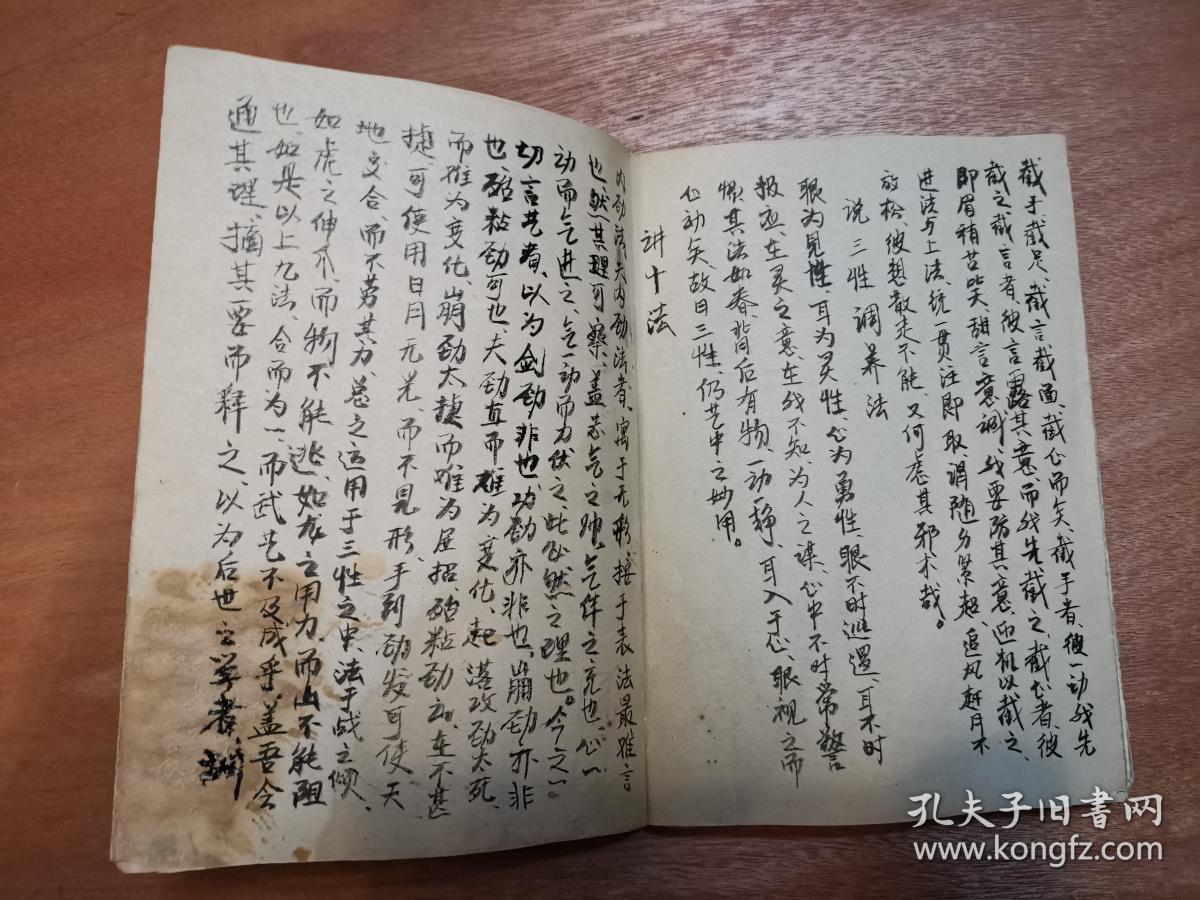 截手截足、截言截面、截心而矣、截手者、彼一动我先
截之、截言者、彼言露其意而我先截之、截心者、彼
即眉稍苦笑、甜言意调、我要防其意、迎机以截之、
进法与上法、统一贯注即取、渭随身紧起、追风赶月不
放松彼想散走不能、又何虑其邪不哉。
说三性调养法
眼为见性、耳为灵性、心为勇性、眼不时巡逻、耳不时
报应、在灵之意、在我不知、为人之谋、心中不时常警
惧、其法如春、背后有物、一动一静、耳入于心、眼视之而
心动矣、故曰三性、仍艺中之妙用。
讲十法
内劲法、夫内劲法者、寓于无形、接于表、法最难言
也、然其理可察、盖志气之帅、气体之充也、心一
动而气进之、气一动而力伏之、此必然之理也。今之一
切言艺者、以为剑劲非也、功劲亦非也、崩劲亦非
也、殆粘劲可也、夫劲直而难为变化、起落攻劲夫死、
而难为变化、崩劲太捷而难为展招、殆粘劲、在不甚
捷、可使用日月无光、而不见形、手到劲发可使、天
地交合、而不劳其力、总之运用于三性之中、法于战之倾、
如虎之伸爪、而物不能逃、如龙之用力、而山不能阻
也、如是以上九法、合而为一、而武艺不及成乎、盖吾今
通其理、摘其要而释之、以为后世之学者
孔夫子旧书网
www.kongfz.com